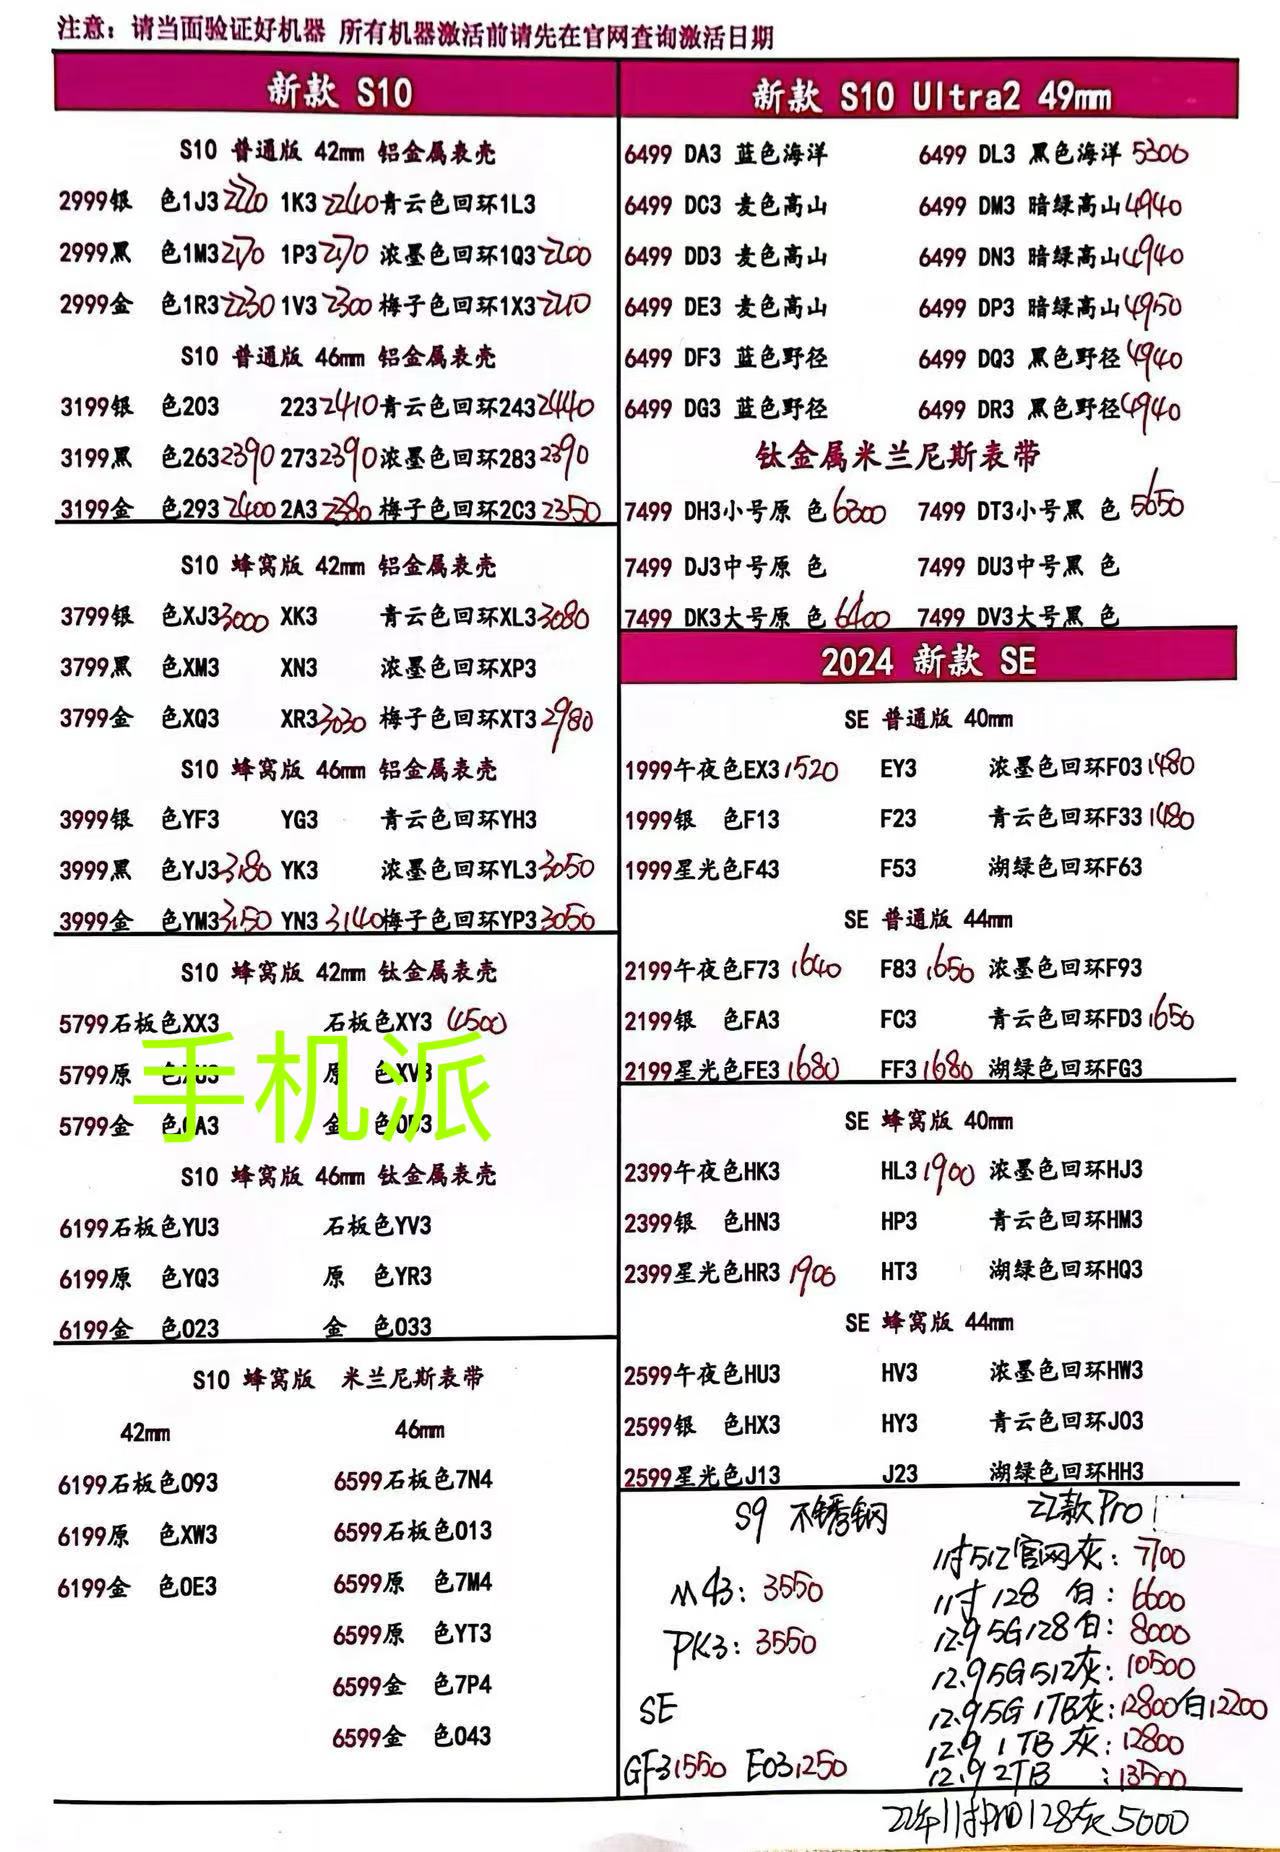 注意：请当面验证好机器 所有机器激活前请先在官网查询激活日期
新款 S10
S10 普通版 42mm 铝金属表壳
2999银 色1J3 2220 1K3 2240 青云色回环1L3
2999黑 色1M3 2170 1P3 2170 浓墨色回环1Q3 2200
2999金 色1R3 2230 1V3 2300 梅子色回环1X3 2210
S10 普通版 46mm 铝金属表壳
3199银 色203 223 2410 青云色回环243 2440
3199黑 色263 2390 273 2390 浓墨色回环283 2390
3199金 色293 2400 2A3 2380 梅子色回环2C3 2350
S10 蜂窝版 42mm 铝金属表壳
3799银 色XJ3 3000 XK3 青云色回环XL3 3080
3799黑 色XM3 XN3 浓墨色回环XP3
3799金 色XQ3 XR3 3030 梅子色回环XT3 2980
S10 蜂窝版 46mm 铝金属表壳
3999银 色YF3 YG3 青云色回环YH3
3999黑 色YJ3 3180 YK3 浓墨色回环YL3 3050
3999金 色YM3 3150 YN3 3140 梅子色回环YP3 3050
S10 蜂窝版 42mm 钛金属表壳
5799石板色XX3 石板色XY3 4500
5799原 色XU3 原 色XV3
5799金 色0A3 金 色0D3
手机派
S10 蜂窝版 46mm 钛金属表壳
6199石板色YU3 石板色YV3
6199原 色YQ3 原 色YR3
6199金 色023 金 色033
S10 蜂窝版 米兰尼斯表带
42mm 46mm
6199石板色093 6599石板色7N4
6199原 色XW3 6599石板色013
6199金 色0E3 6599原 色7M4
6599原 色YT3
6599金 色7P4
6599金 色043
新款 S10 Ultra2 49mm
6499 DA3 蓝色海洋 6499 DL3 黑色海洋 5300
6499 DC3 麦色高山 6499 DM3 暗绿高山 4940
6499 DD3 麦色高山 6499 DN3 暗绿高山 4940
6499 DE3 麦色高山 6499 DP3 暗绿高山 4950
6499 DF3 蓝色野径 6499 DQ3 黑色野径 4940
6499 DG3 蓝色野径 6499 DR3 黑色野径 4940
钛金属米兰尼斯表带
7499 DH3小号原 色 6300 7499 DT3小号黑 色 5650
7499 DJ3中号原 色 7499 DU3中号黑 色
7499 DK3大号原 色 6400 7499 DV3大号黑 色
2024 新款 SE
SE 普通版 40mm
1999午夜色EX3 1520 EY3 浓墨色回环F03 1480
1999银 色F13 F23 青云色回环F33 1480
1999星光色F43 F53 湖绿色回环F63
SE 普通版 44mm
2199午夜色F73 1640 F83 1650 浓墨色回环F93
2199银 色FA3 FC3 青云色回环FD3 1650
2199星光色FE3 1680 FF3 1680 湖绿色回环FG3
SE 蜂窝版 40mm
2399午夜色HK3 HL3 1900 浓墨色回环HJ3
2399银 色HN3 HP3 青云色回环HM3
2399星光色HR3 1900 HT3 湖绿色回环HQ3
SE 蜂窝版 44mm
2599午夜色HU3 HV3 浓墨色回环HW3
2599银 色HX3 HY3 青云色回环J03
2599星光色J13 J23 湖绿色回环HH3
S9 不锈钢
M43: 3550
PK3: 3550
SE
GF3 1550 E03 1250
22款Pro
11寸512官网灰: 7700
11寸128 白: 6600
12.9 5G 128白: 8000
12.9 5G 512灰: 10500
12.9 5G 1TB灰: 12800/白12200
12.9 1TB 灰: 12800
12.9 2TB : 13500
22年11寸Pro 128灰 5000